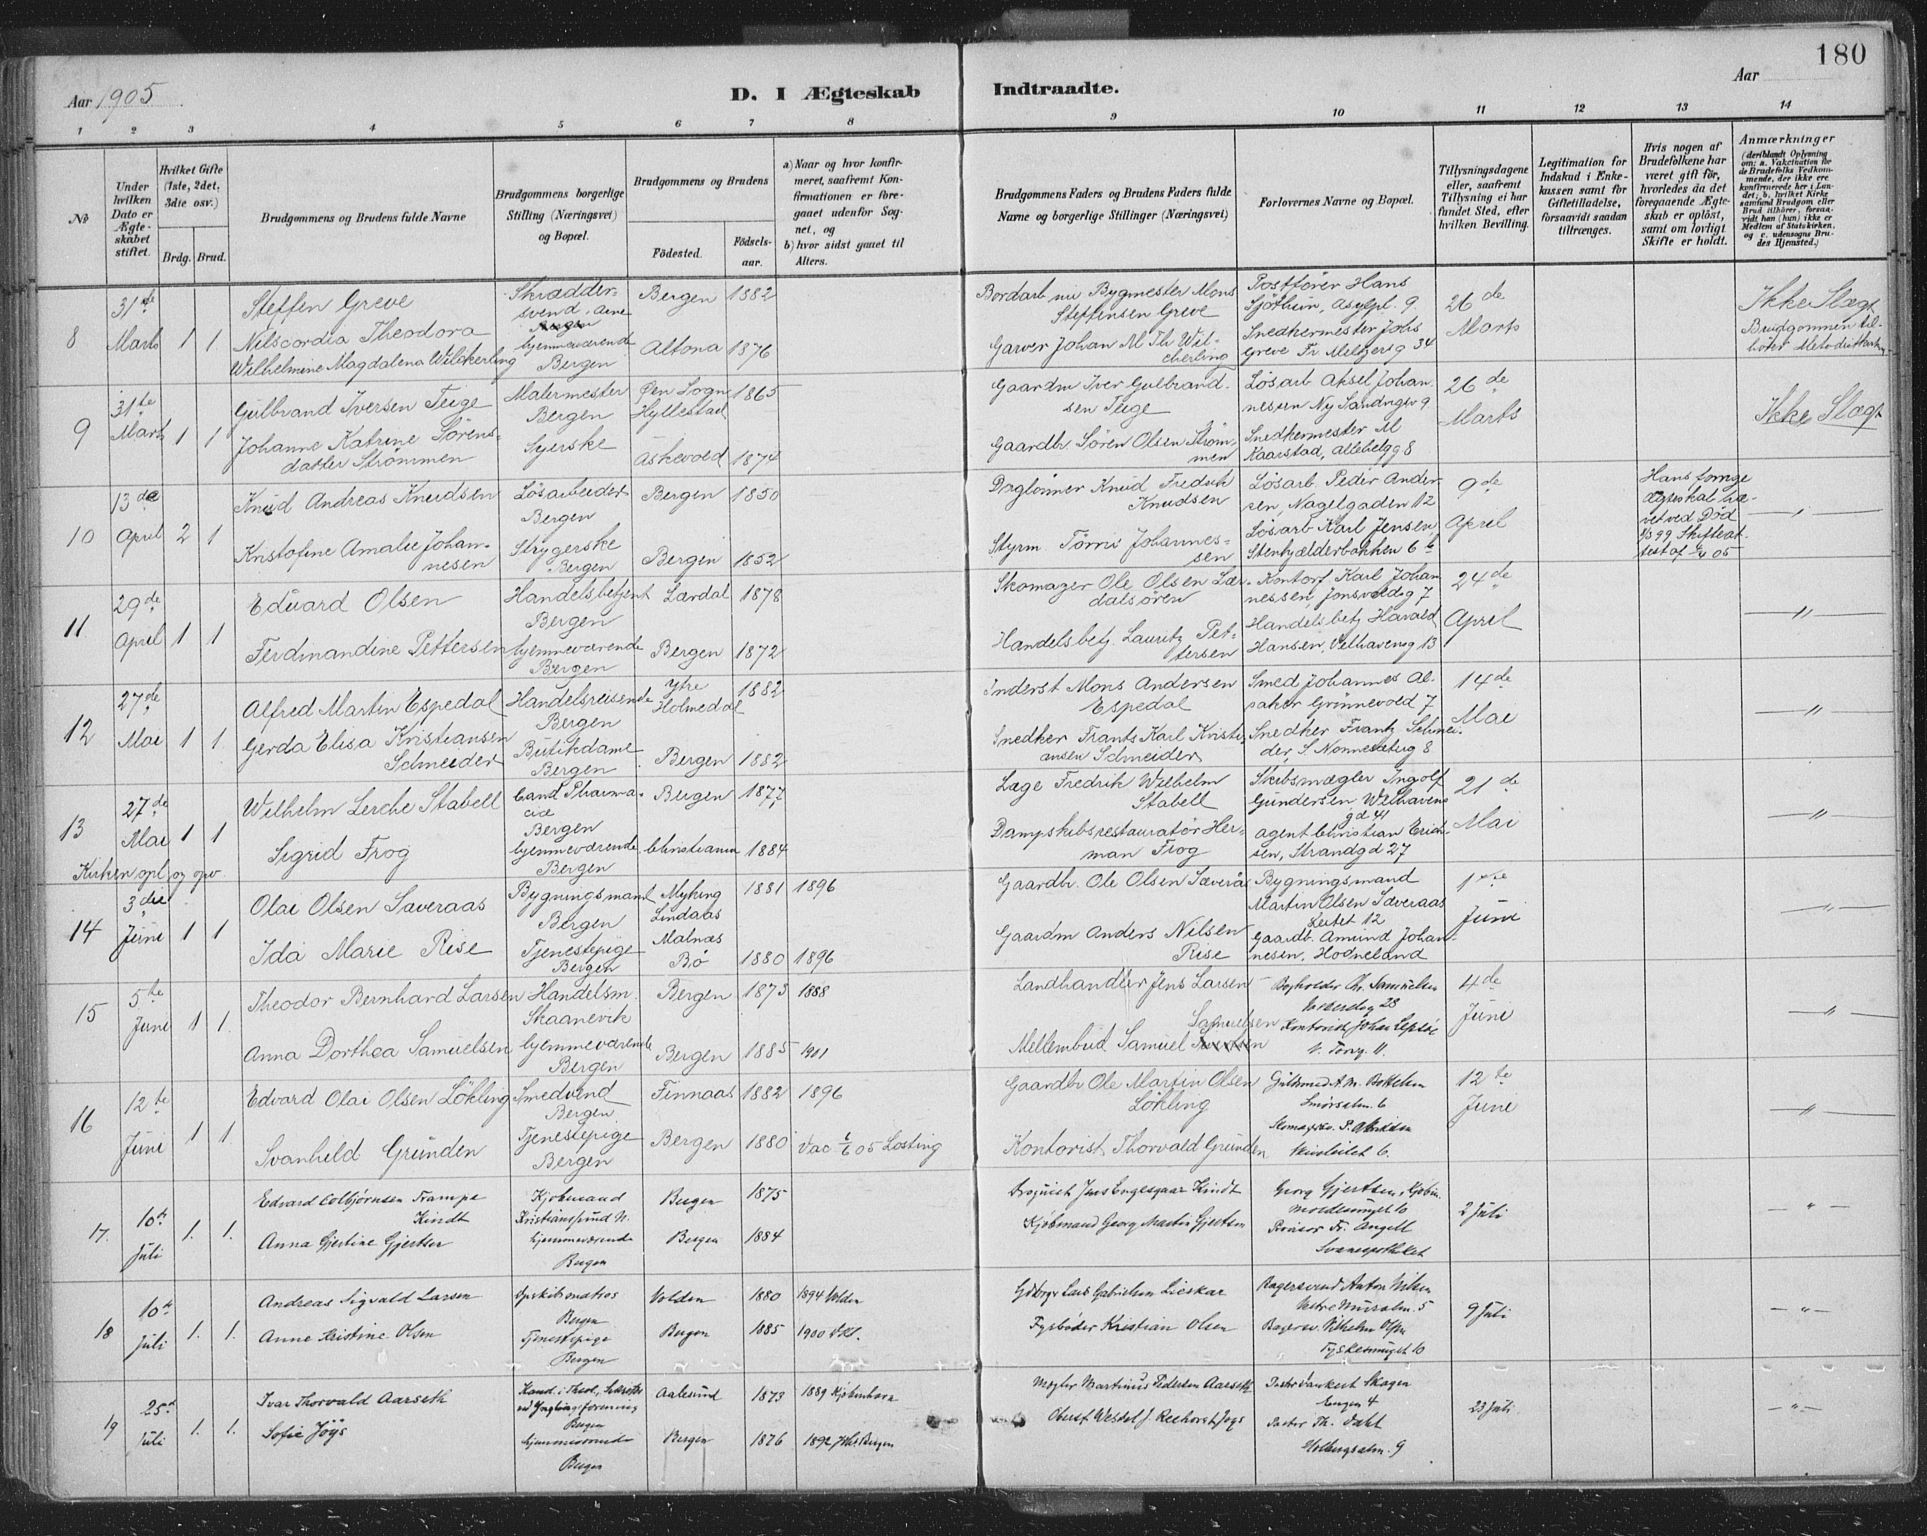 180
Aar 1905
D. I Ægteskab
Indtraadte.
Aar
1 2 3 4 5 6 7 8 9 10 11 12 13 14
№
Under hvilken Dato er Ægteskabet stiftet.
Hvilket Gifte (1ste, 2det, 3die osv.)
Brdg. Brud.
Brudgommens og Brudens fulde Navne
Brudgommens borgerlige Stilling (Næringsvei) og Bopæl.
Brudgommens og Brudens
Fødested. Fødselsaar.
a) Naar og hvor konfirmeret, saafremt Konfirmationen er foregaaet udenfor Sognet, og
b) hvor sidst gaaet til Alters.
Brudgommens Faders og Brudens Faders fulde Navne og borgerlige Stillinger (Næringsvei)
Forlovernes Navne og Bopæl.
Tillysningsdagene eller, saafremt Tillysning ei har fundet Sted, efter hvilken Bevilling.
Legitimation for Indskud i Enkekassen samt for Giftetilladelse, forsaavidt saadan tiltrænges.
Hvis nogen af Brudefolkene har været gift før, hvorledes da det foregaaende Ægteskab er opløst, samt om lovligt Skifte er holdt.
Anmærkninger
(deriblandt Oplysning om: a. Vakcination for Brudefolks Vedkommende, der ikke ere konfirmerede her i Landet, b. hvilket Kirkesamfund Brudgom eller Brud tilhører, forsaavidt han (hun) ikke er Medlem af Statskirken, og c. udensogns Brudes Hjemsted.)
8 31te Marts 1 1
Steffen Greve Skræddersvend, Bergen 1882
Nilscordia Theodora
Wilhelmine Magdalena Wilckerling hjemmeværende Bergen Altona 1876
Bordarb nu Bygmester Mons Steffensen Greve
Garver Johan M Th Wilcherling
Postfører Hans
Snedkermester Johs Greve Fr Meltzersg 34
26de Marts
Ikke Slægt
Brudgommen tilhører Metodistkirken
9 31te Marts 1 1
Gulbrand Iversen Teige Malermester Bergen Øen Sogn Hyllestad 1865
Johanne Katrine Sørensdatter Strømmen Syerske Askevold 1874
Gaardm Iver Gulbrandsen Teige
Gaardbr. Søren Olsen Strømmen
Løsarb Aksel Johannessen Ny Sandvigsv 9
Snedkermester M Kaarstad, Allehelgg 8
26de Marts
Ikke Slægt
10 13de April 2 1
Knud Andreas Knudsen Løsarbeider Bergen Bergen 1850
Kristofine Amalie Johannesen Strygerske Bergen Bergen 1852
Daglønner Knud Fredrik Knudsen
Styrm Tørris Johannessen
Løsarb Peder Andersen, Nagelgaden 12
Løsarb Karl Jensen, Stenkjælderbakken 6 b
9de April
Hans forrige Ægteskab hævet ved Død 99 Skifteattest af 05
11 29de April 1 1
Eduard Olsen Handelsbetjent Bergen Lærdal 1878
Ferdinandine Pettersen hjemmeværende Bergen Bergen 1872
Skomager Ole Olsen Lærdalsøren
Handelsbetj. Lauritz Pettersen
Kontorf Karl Johannessen, Jonsvoldsg 7
Handelsbetj Harald Hansen, Velhavensg 13
24de April
"
12 27de Mai 1 1
Alfred Martin Espedal Handelsreisende Bergen Ytre Holmedal 1882
Gerda Elisa Kristiansen Schneider Butikdame Bergen Bergen 1882
Inderst Mons Andersen Espedal
Snedker Frants Karl Kristiansen Schneider
Smed Johannes Alsaker Grønnevold 7
Snedker Frantz Schneider, S. Nonnesæterg 8
14de Mai
"
13 27de Mai 1 1
Wilhelm Lerche Stabell Cand Pharmacie Bergen Bergen 1877
Sigrid Frog hjemmeværende Bergen Christiania 1884
Kirken opl og opv
Læge Fredrik Wilhelm Stabell
Dampskibsrestauratør Herman Frog
Skibsmægler Ingolf Gundersen Welhavensgd 41
Agent Christian Erichsen, Strandgd 27
21de Mai
"
14 3die Juni 1 1
Olai Olsen Saveraas Bygningsmand Bergen Myking Lindaas 1881 1896
Ida Marie Rise Tjenestepige Bergen Malnæs Bø 1880 1896
Gaardbr. Ole Olsen Sæverås
Gaardm Anders Nilsen Rise
Bygningsmand Martin Olsen Sæveraas Leitet 12
Gaardb. Amund Johannesen, Hodneland
1ste Juni
"
15 5te Juni 1 1.
Theodor Bernhard Larsen Handelsm. Skaanevik Bergen 1873 1888
Anna Dorthea Samuelsen hjemmeværende Bergen Bergen 1885 1901
Landhandler Jens Larsen
Mellembud Samuel Samuelsen
Bogholder Chr. Samuelsen 28
Kontorist Johan Lepsøe V. Torvg. 11.
4de Juni
"
16 12te Juni 1 1
Edvard Olai Olsen Løkling Smedsvend Bergen Finnaas 1882 1896
Svanhild Grunden Tjenestepige Bergen Bergen 1880 Vac 05 Losting
Gaardbr Ole Martin Olsen Løkling
Kontorist Thorvald Grunden
Smørsalm. 6
6.
12te Juni
"
17. 10de Juli 1. 1.
Edvard Colbjørnsen Trampe Kindt Kjøbmand Kristianssund N. Bergen 1875
Anna Gjertine Gjertsen hjemmeværende Bergen Bergen 1884
Droguist Jens Engesgaar Kindt
Kjøbmand Georg Martin Gjertsen
Georg Gjertsen, Kjøbm.
Provisor Fr. Angell Svaneapotheket
2 Juli
"
18 10de Juli 1. 1.
Andreas Sigvald Larsen Bergen Volden 1880 1894 Volden
Anne Kristine Olsen Tjenestepige Bergen Bergen 1885 1900
Gdbrgr Lars Gabrielsen Lieskar
Fyrbøder Kristian Olsen
Bagersvend Anton Nilsen Vestre Muralm. 5
Bagersv. Vilhelm Olsen Tyskesmuget 10
9 Juli
"
19 25de Juli 1. 1.
Ivar Thorvald Aarseth Kand. i Theol., Sekretær ved Ynglingeforening Bergen Aalesund 1873 1889 Kjøbenhavn
Sofie Jøys hjemmeværende Bergen Bergen 1876 1892 Bergen
Mægler Martinus Pedersen Aarseth
Pastor Skagen Engen 4
Pastor Th. Dahl Holbergsalm. 9
23 Juli
"